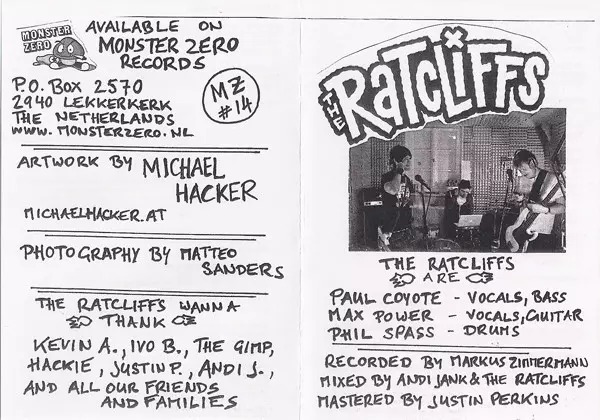 MONSTER
ZERO
AVAILABLE ON
MONSTER ZERO
RECORDS
P.O. BOX 2570
2940 LEKKERKERK
THE NETHERLANDS
WWW.MONSTERZERO.NL
MZ
#14
ARTWORK BY MICHAEL
HACKER
MICHAELHACKER.AT
PHOTOGRAPHY BY MATTEO
SANDERS
THE RATCLIFFS WANNA
THANK
KEVIN A., IVO B., THE GIMP,
HACKIE, JUSTIN P., ANDI J.,
AND ALL OUR FRIENDS
AND FAMILIES
THE
RATCLiFFS
THE RATCLIFFS
ARE
PAUL COYOTE - VOCALS, BASS
MAX POWER - VOCALS, GUITAR
PHIL SPASS - DRUMS
RECORDED BY MARKUS ZIMMERMANN
MIXED BY ANDI JANK & THE RATCLIFFS
MASTERED BY JUSTIN PERKINS